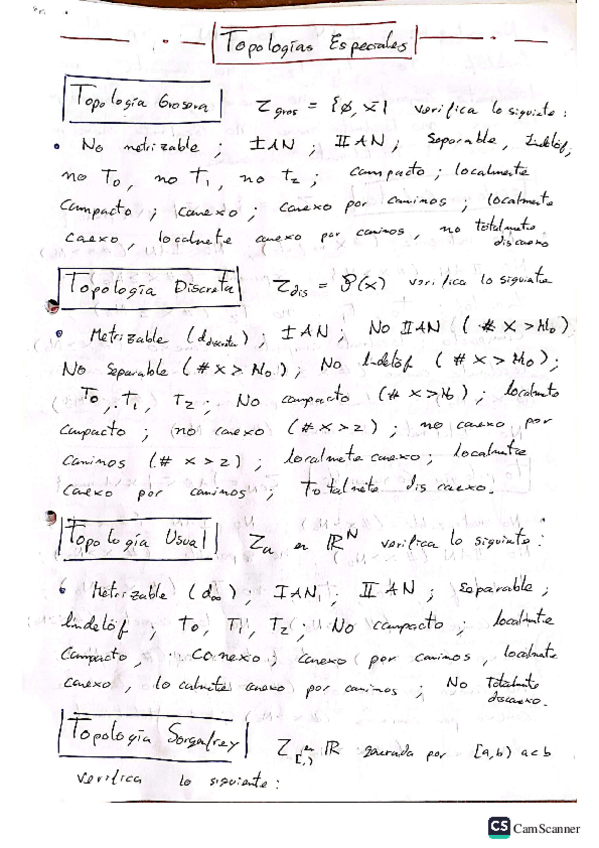 Topologías Especiales
Topología Grosera τgros = {ø, X} verifica lo siguiente :
• No metrizable ; I AN ; II AN ; Separable, Lindelöf,
no T0, no T1, no T2 ; compacto ; localmente
compacto ; conexo ; conexo por caminos ; localmente
conexo, localmente conexo por caminos, no totalmente
disconexo
Topología Discreta τdis = P(X) verifica lo siguiente
• Metrizable (ddiscreta) ; I AN ; No II AN ( # X > ℵ0)
No Separable (# X > ℵ0) ; No Lindelöf ( # X > ℵ0) ;
T0, T1, T2 ; No compacto (# X > ℵ0) ; localmente
compacto ; no conexo (# X > 2) ; no conexo por
caminos (# X > 2) ; localmente conexo ; localmente
conexo por caminos ; Totalmente disconexo.
Topología Usual τu en ℝN verifica lo siguiente :
• Metrizable (d∞) ; I AN ; II AN ; Separable ;
lindelöf ; T0, T1, T2 ; No compacto ; localmente
compacto, conexo ; conexo por caminos, localmente
conexo, localmente conexo por caminos ; No Totalmente
disconexo.
Topología Sorgenfrey τ[,) en ℝ generada por [a,b) a<b
verifica lo siguiente :
CS CamScanner